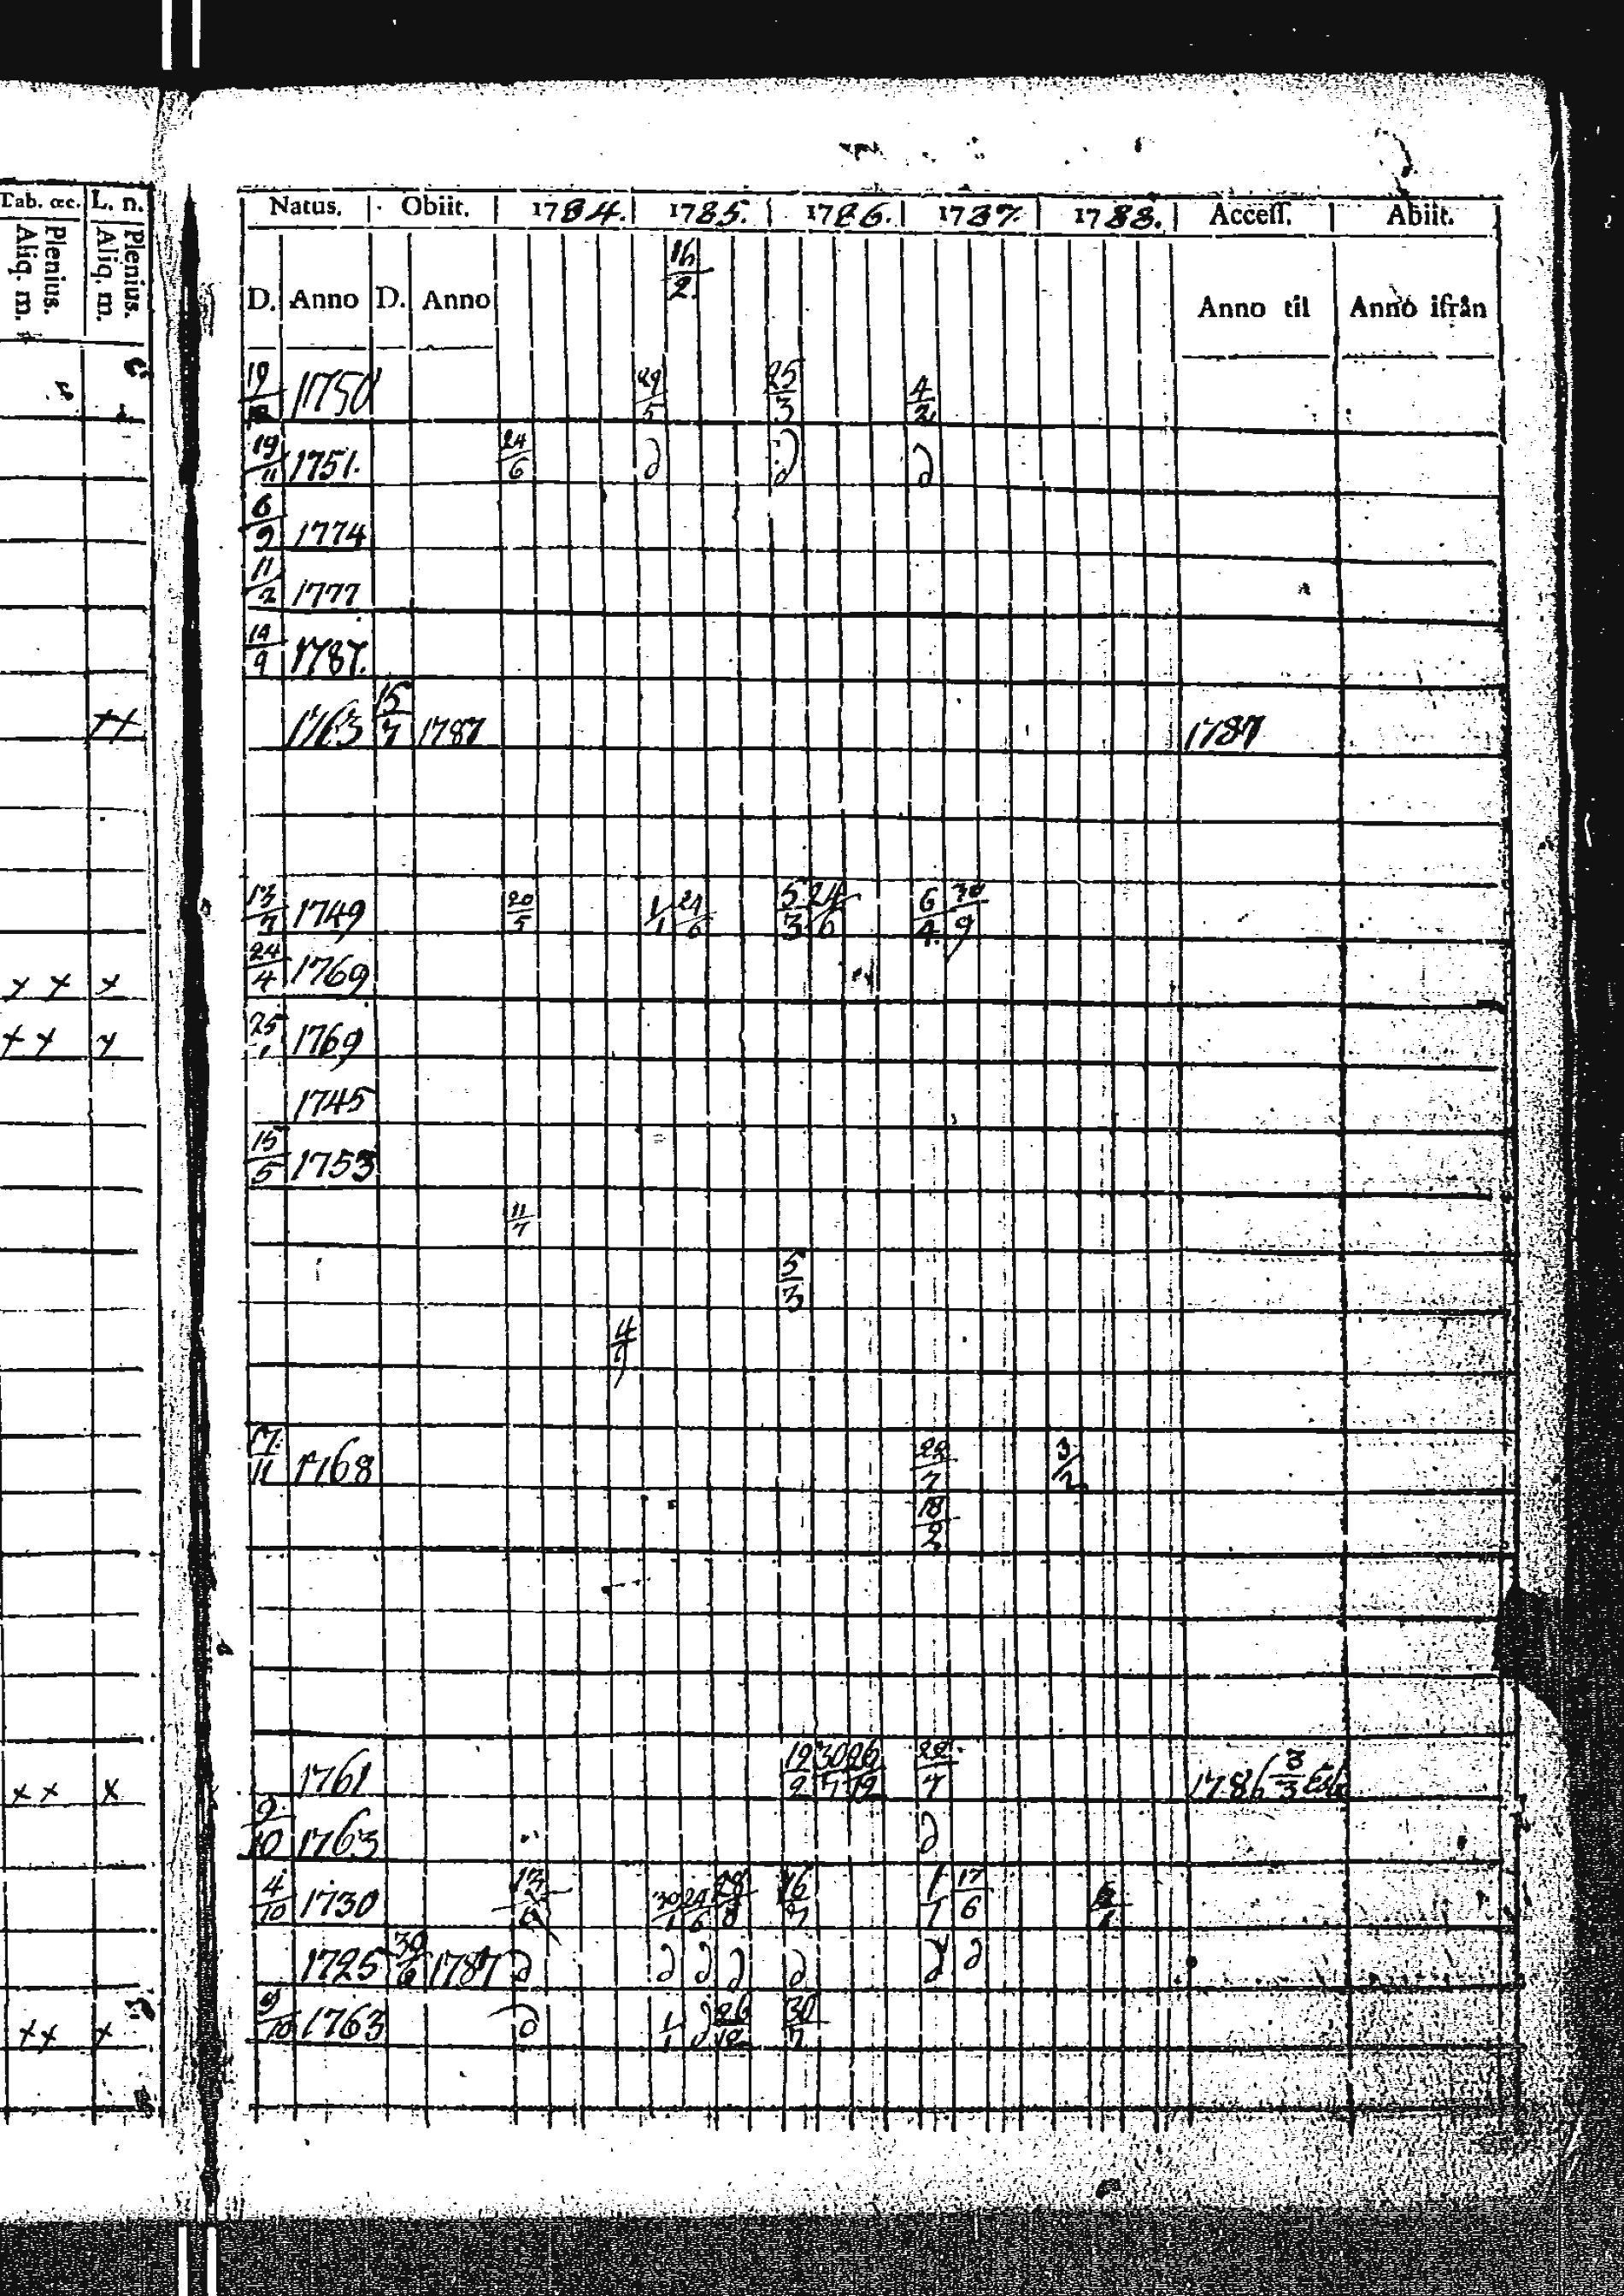 Tab. œc. L. n.
Plenius. Aliq. m. Plenius. Aliq. m.
Natus. Obiit. 1784. 1785. 1786. 1787. 1788. Acceſſ. Abiit.
16/2.
D. Anno D. Anno Anno til Anno ifrån
19/ 1750 29/5 25/3 4/2
19/11 1751. 24/6 d d d
6/9 1774
11/2 1777
14/9 1787.
++ 1763 15/7 1787 1787
13/3 1749 20/5 1/1 24/6 5/3 24/6 6/4. 30/9
+ + + 24/4 1769
+ + + 25/1 1769
1745
15/5 1753
11/7
5/3
4/9
17./11 1768 22/7 3/2
18/2
+ + + 1761 12/2 30/7 26/12 22/7 1786 3/3
9/10 1763 d
4/10 1730 13/ 30/1 24/6 28/8 16/7 1/1 17/6
1725 30/6 1787 d d d d d d d
++ + 9/10 1763 d 1/1 d 26/12 30/7